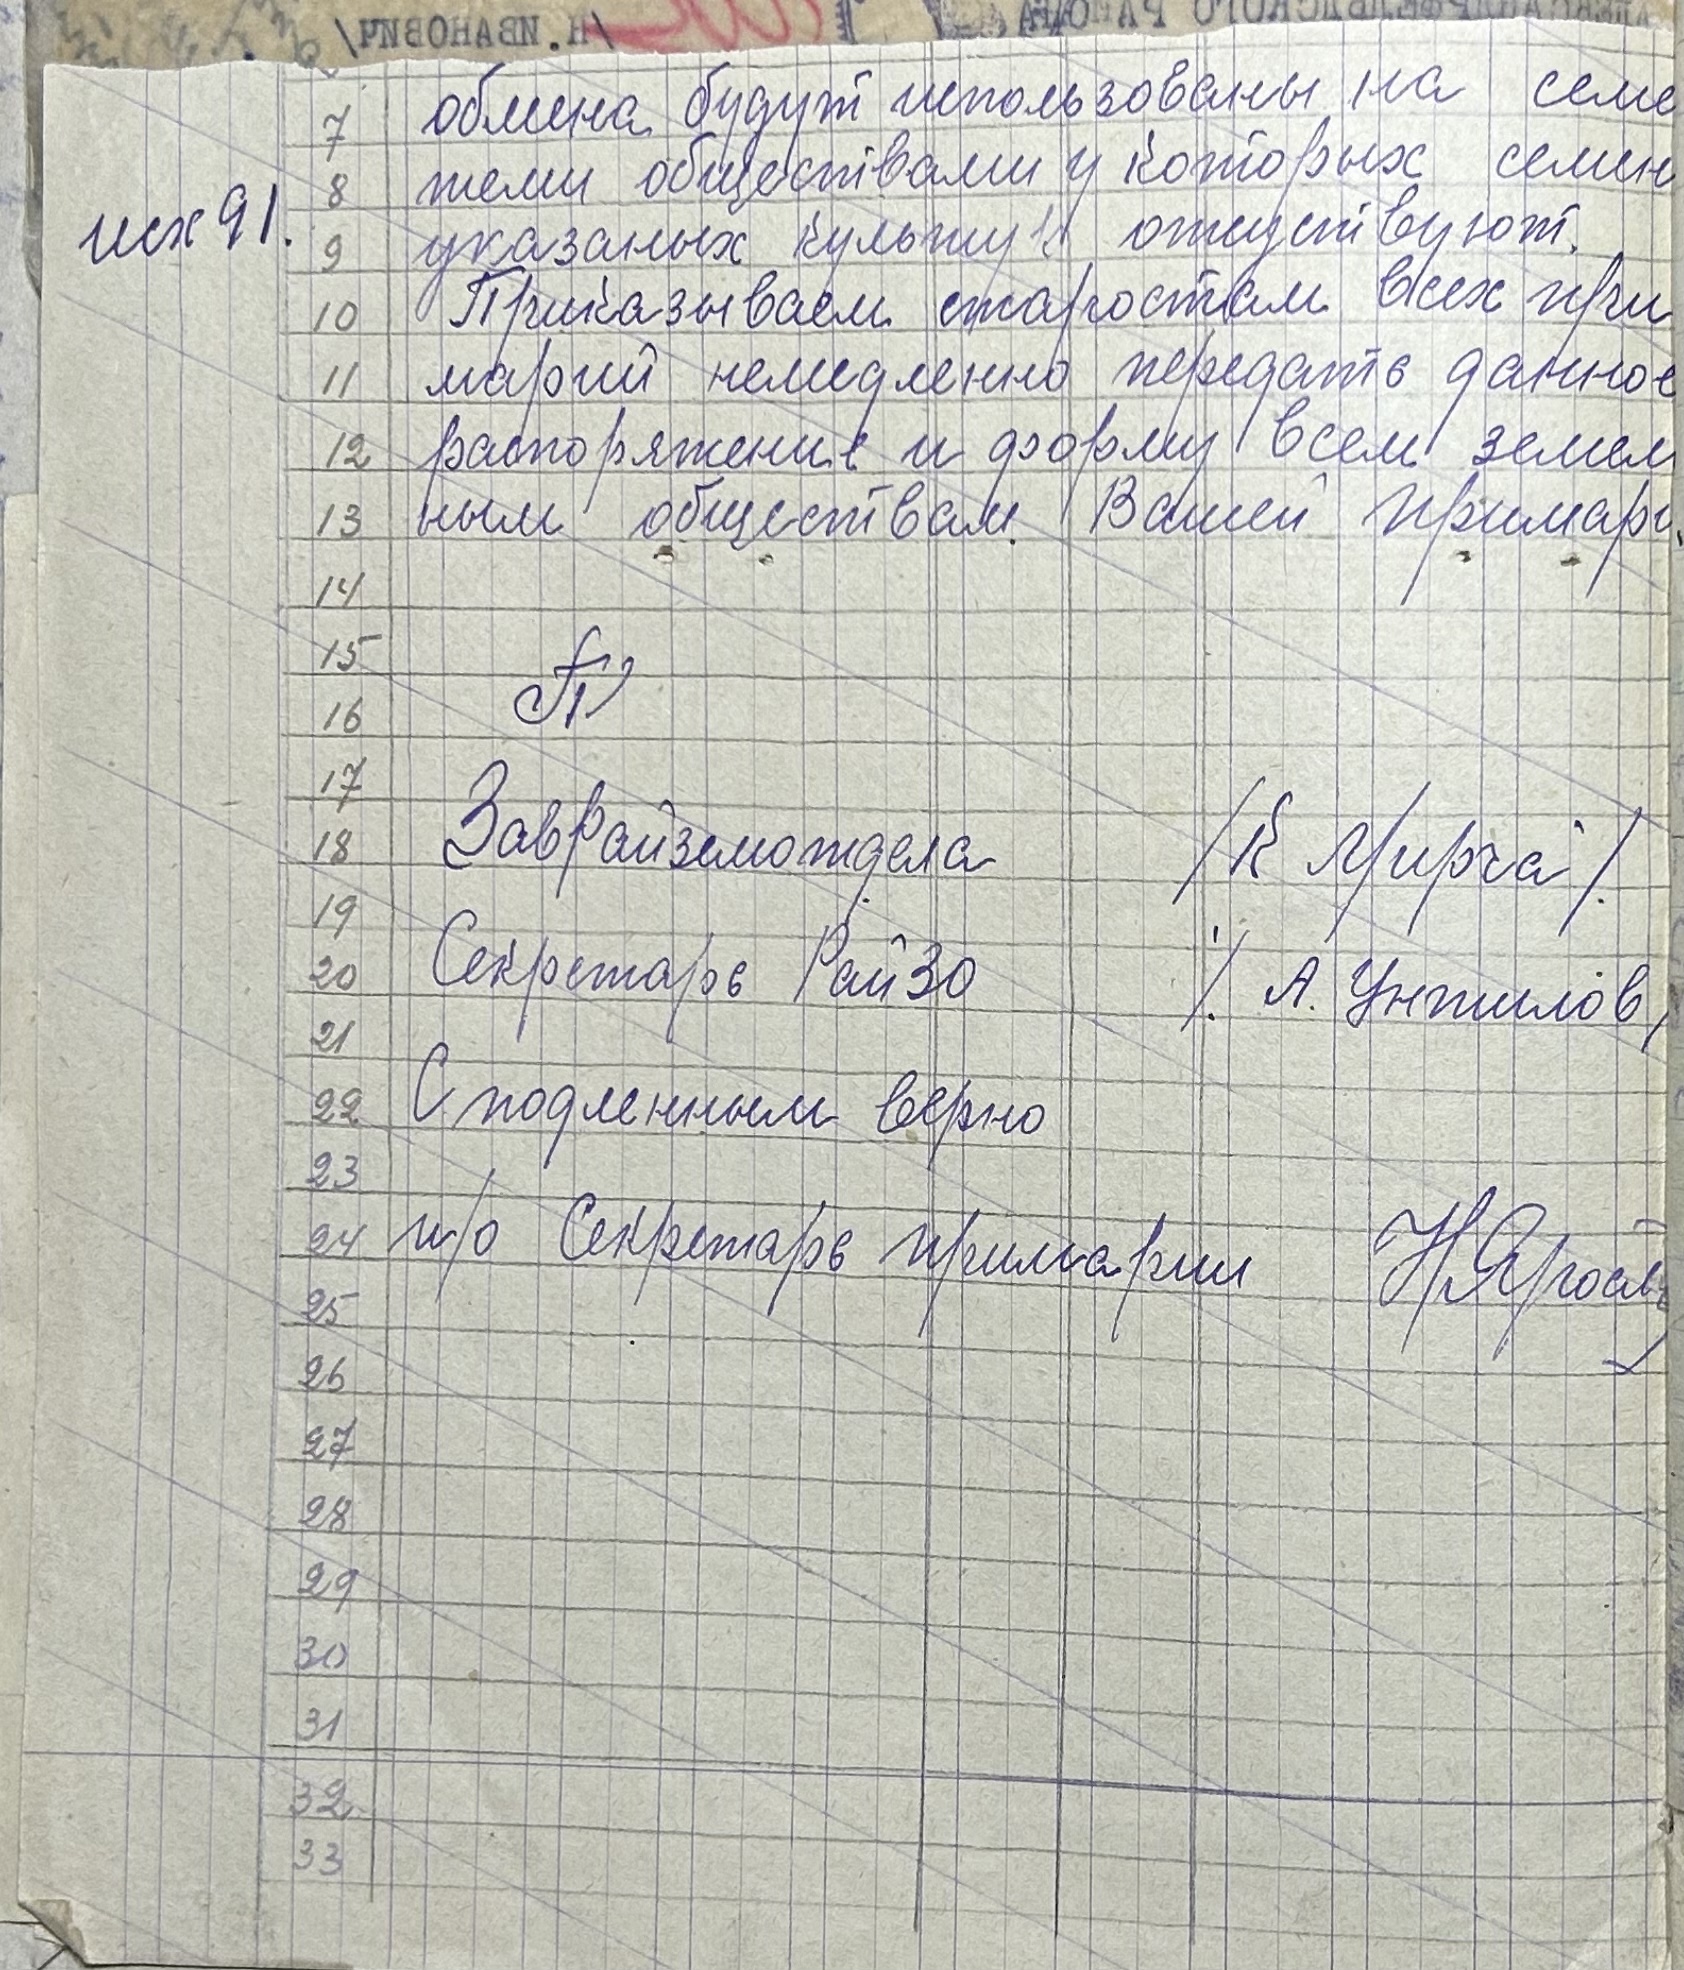 /Н.ИВАНОВИЧ/
7 обмена будут использованы на семе
8 теми обществами у которых семен
исх 91.
9 указаных культур отцуствуют.
10 Приказываем старостам всех при
11 марий немедленно передать данное
12 распоряжение и форму всем земел
13 ным обществам Вашей примари
14
15
16 П
17
18 ЗавРайземотдела /К Мирча/.
19
20 Секретарь РайЗО /. А. Унтилов/
21
22 С подленным верно
23
24 и/о Секретарь примарии Н Яросл
25
26
27
28
29
30
31
32
33